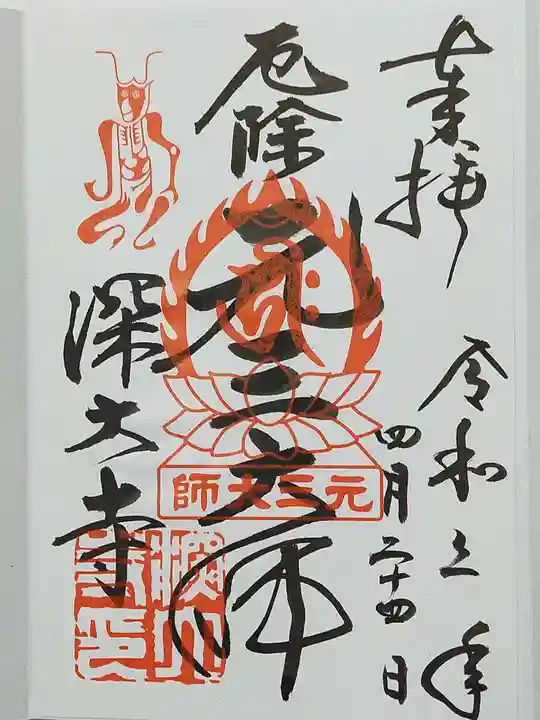 奉拝
令和年
四月二十四日
厄除
元三大師
元三大師
深大寺
深大寺印